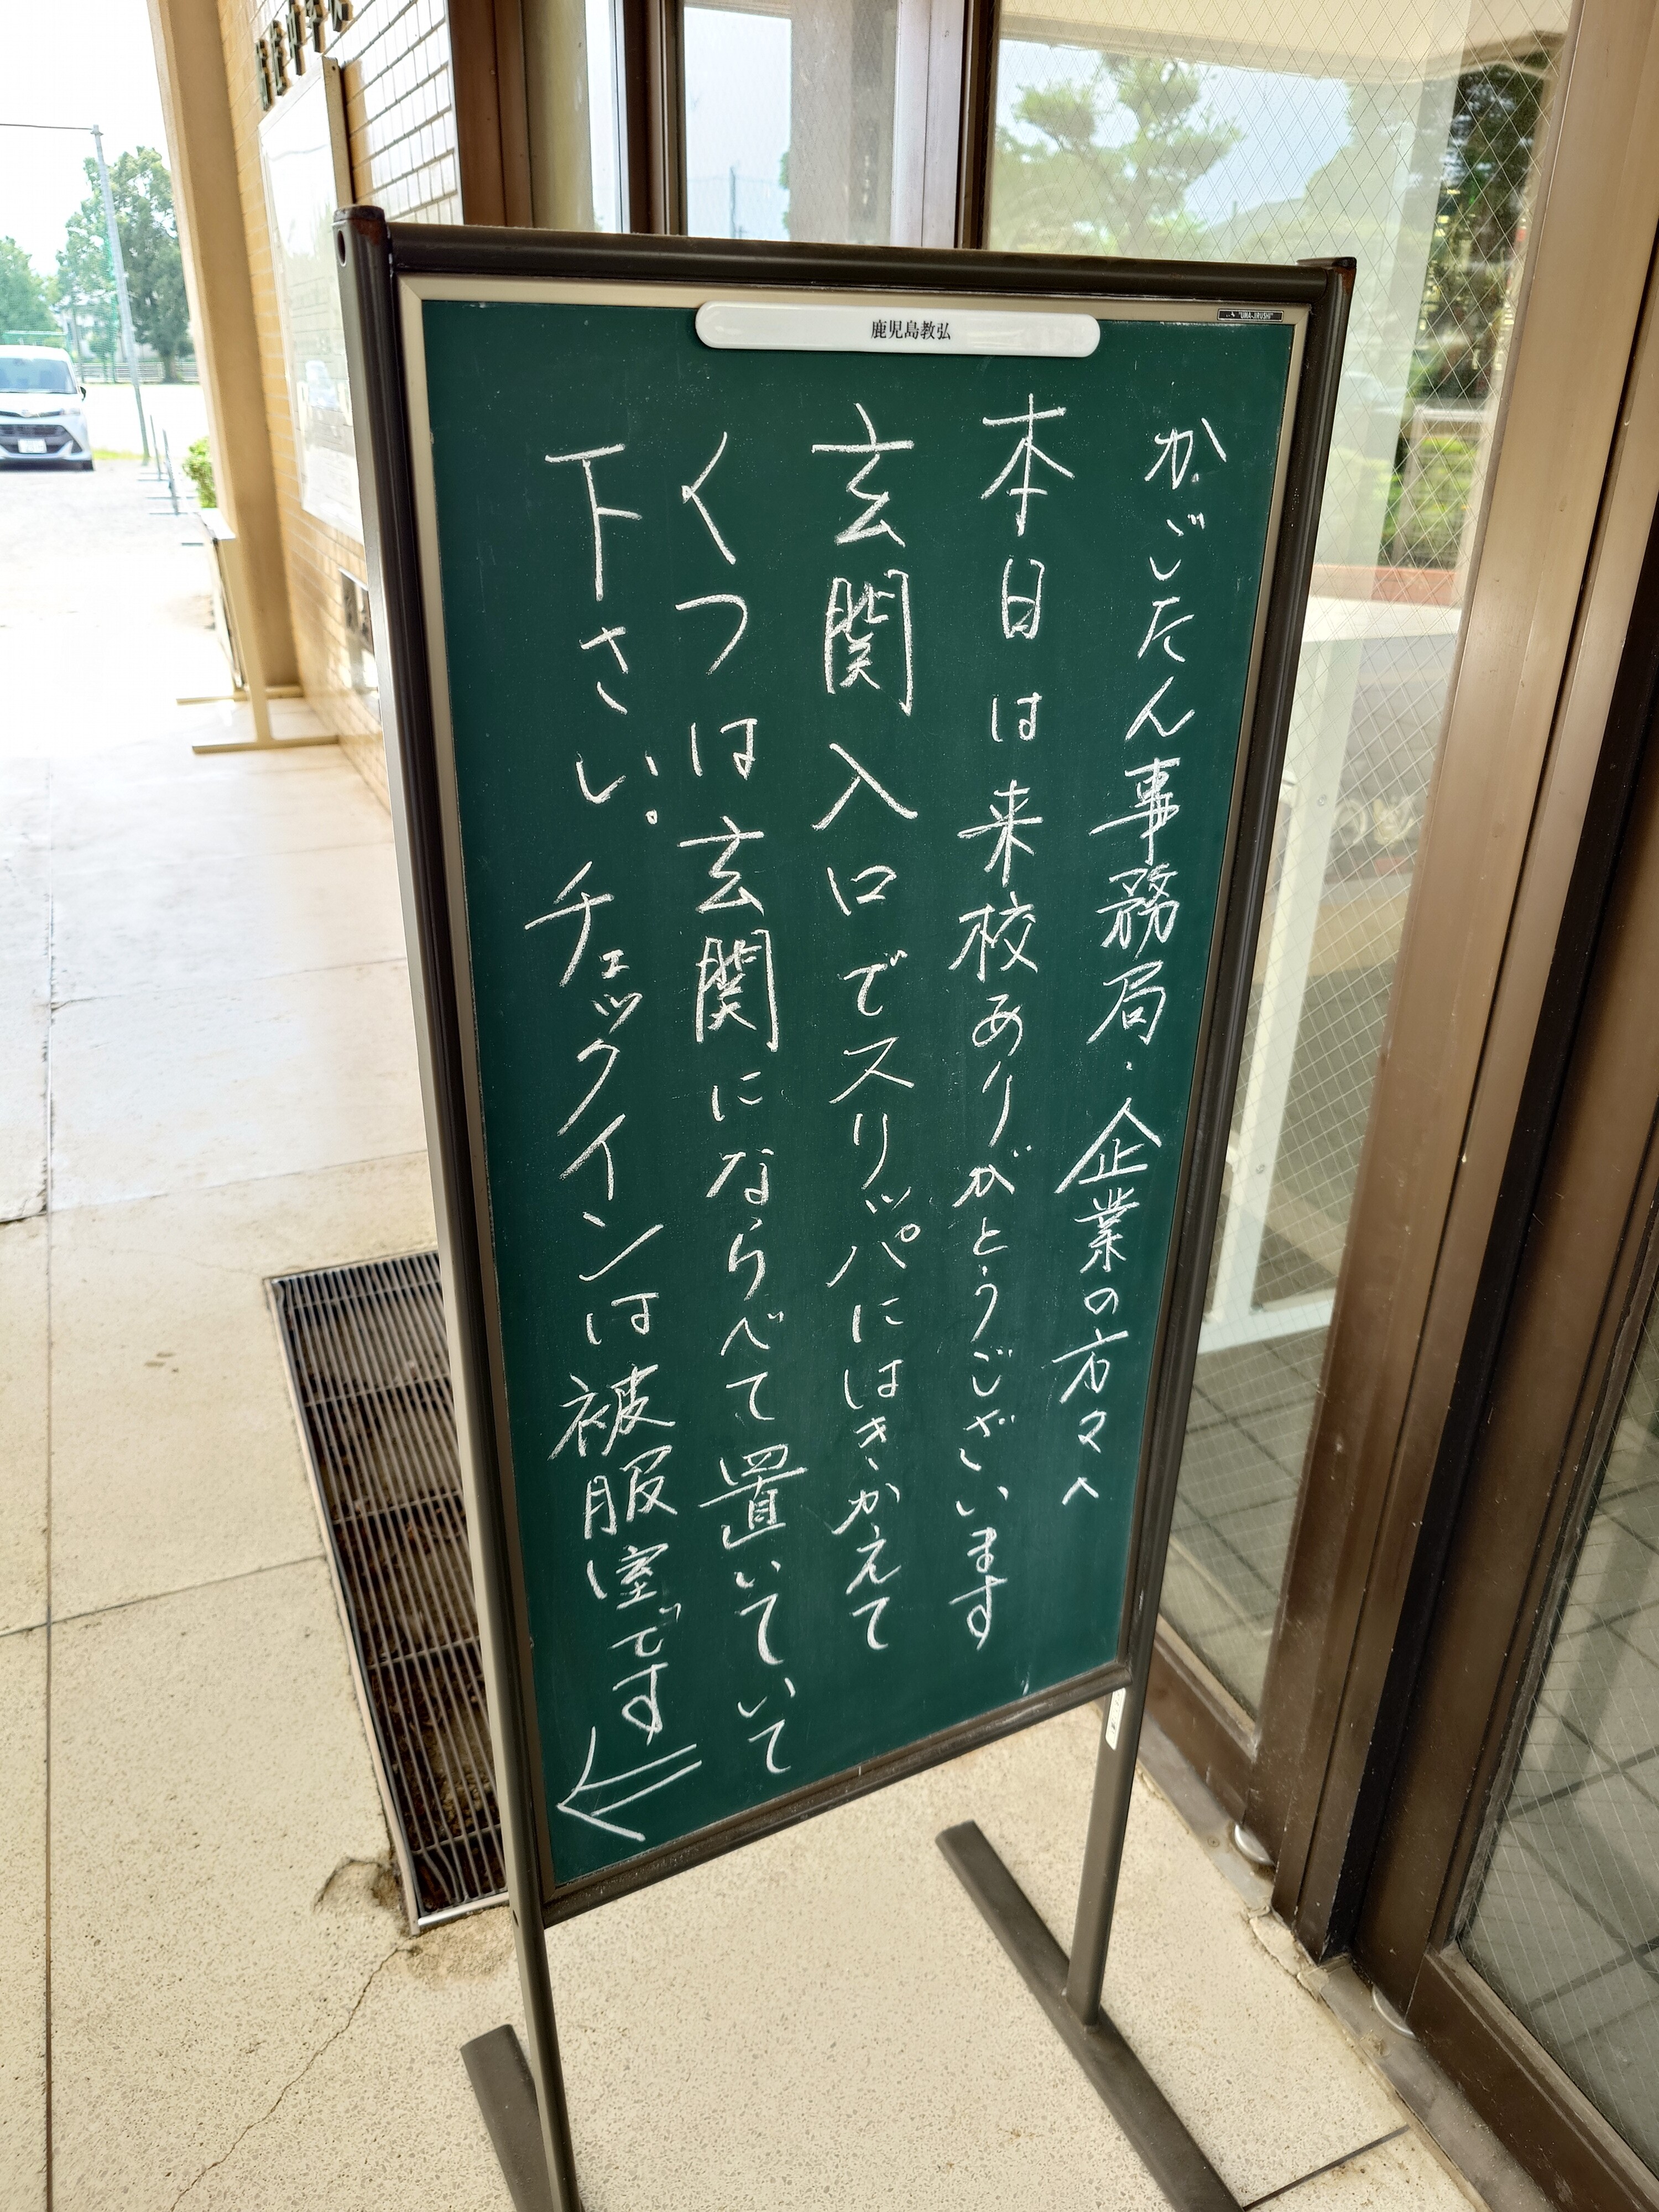 鹿児島教弘
"UMA-JIRUSHI"
かごたん事務局・企業の方々へ
本日は来校ありがとうございます
玄関入口でスリッパにはきかえて
くつは玄関にならべて置いていて
下さい。チェックインは被服室です